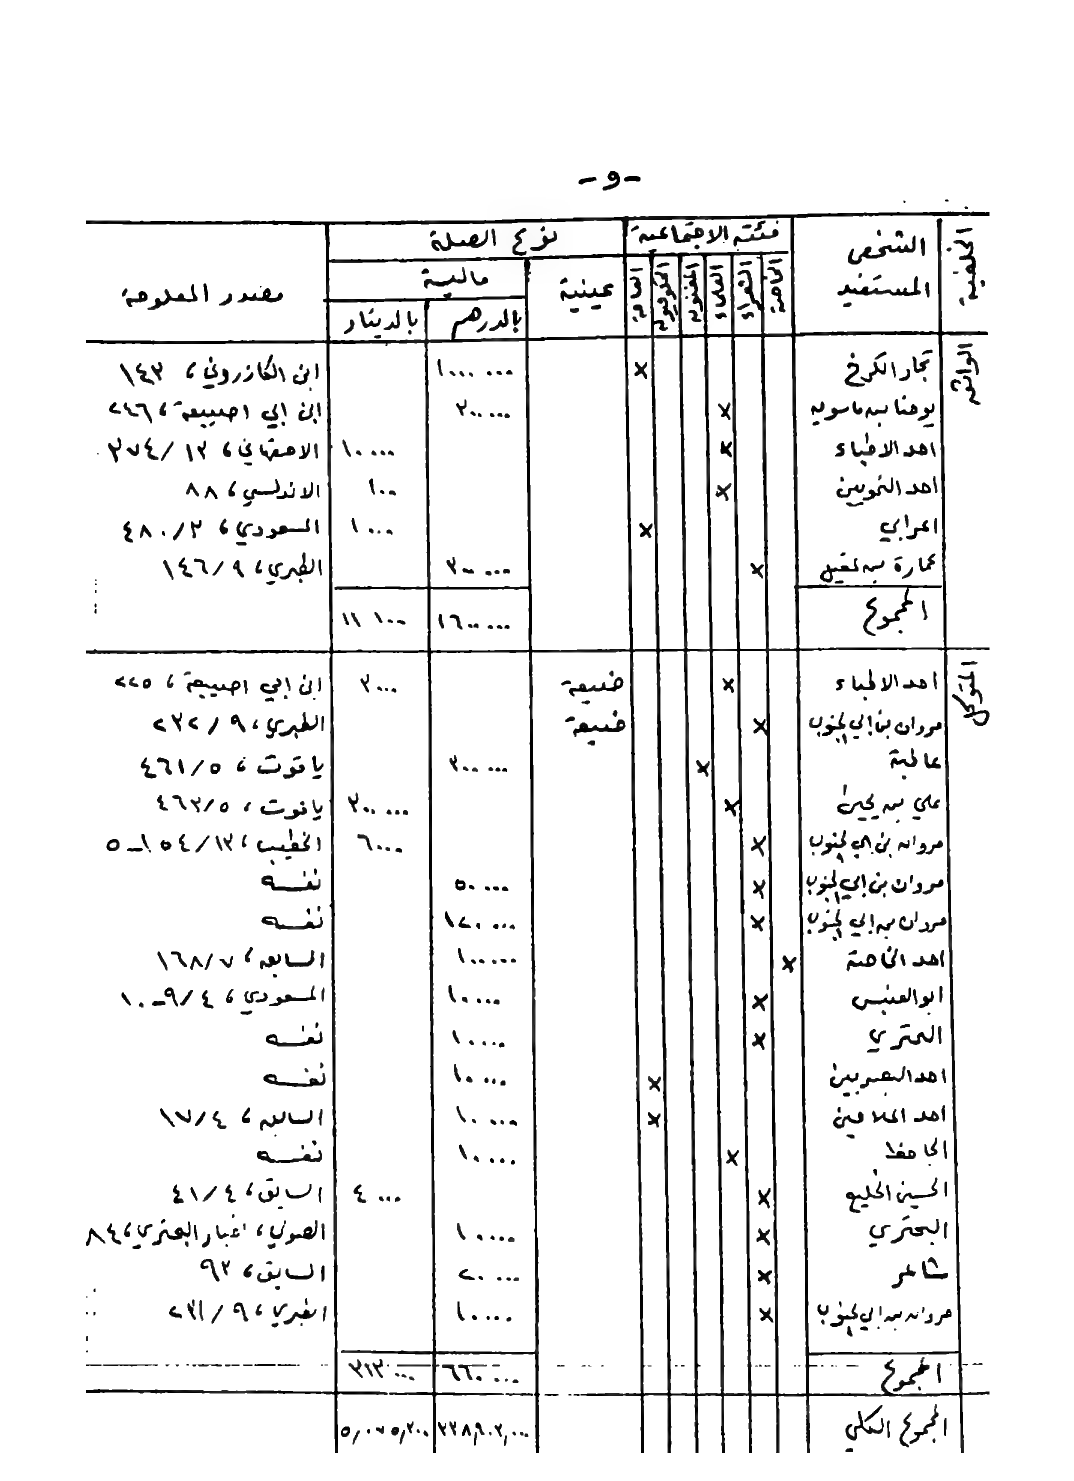 -و-
الخليفة | الشخص المستفيد | فئته الاجتماعية | نوع الصلة | مصدر المعلومة
الخاصة | الشعراء | العلماء | المغنون | العامة | عينية | مالية
بالدرهم | بالدينار
الواثق | تجار الكرخ | × | ١٠٠٠٠٠٠ | ابن الكازروني، ١٤٣
يوحنا بن ماسويه | × | ٣٠٠٠٠٠ | ابن ابي اصيبعة، ٢٤٦
احد الاطباء | × | ١٠٠٠٠ | الاصفهاني، ١٢/٢٧٤
احد النحويين | × | ١٠٠ | الاندلسي، ٨٨
اعرابي | × | ١٠٠٠ | المسعودي، ٣/٤٨٠
عمارة بن عقيل | × | ٣٠٠٠٠٠ | الطبري، ٩/١٤٦
المجموع | ١٦٠٠٠٠٠ | ١١١٠٠
المتوكل | احد الاطباء | × | ضيعة | ٣٠٠٠ | ابن ابي اصيبعة، ٢٢٥
مروان بن ابي الجنوب | × | ضيعة | الطبري، ٩/٢٣٢
× | ٣٠٠٠٠٠ | ياقوت، ٥/٤٦١
علي بن يحيى | × | ٣٠٠٠٠٠ | ياقوت، ٥/٤٦٣
مروان بن ابي الجنوب | × | ٦٠٠٠ | الخطيب، ١٣/١٥٤-٥
مروان بن ابي الجنوب | × | ٥٠٠٠٠ | نفسه
مروان بن ابي الجنوب | × | ١٢٠٠٠٠ | نفسه
احد الخاصة | × | ١٠٠٠٠٠ | السابق، ٧/١٦٨
ابو العنبس | × | ١٠٠٠٠ | المسعودي، ٤/٩-١٠
البحتري | × | ١٠٠٠٠ | نفسه
احد البصريين | × | ١٠٠٠٠ | نفسه
احد الملاحين | × | ١٠٠٠٠ | السابق، ٤/١٧
الجاحظ | × | ١٠٠٠٠ | نفسه
الحسين الخليع | × | ٤٠٠٠ | السابق، ٤/٤١
البحتري | × | ١٠٠٠٠ | الصولي، اخبار البحتري، ٨٤
شاعر | × | ٢٠٠٠٠ | السابق، ٩٢
مروان بن ابي الجنوب | × | ١٠٠٠٠ | الطبري، ٩/٢٣١
المجموع | ٦٦٠٠٠٠ | ٣١٣٠٠٠
المجموع الكلي | ٣٣٨,٩٠٢,٠٠٠ | ٥,٠٧٥,٣٠٠